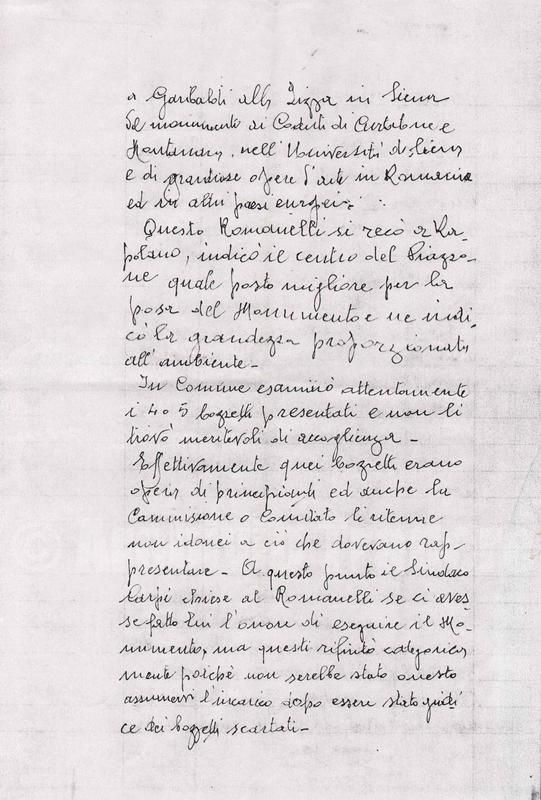 a Garibaldi alla Lizza in Siena
del monumento ai Caduti di Curtatone e
Montanara, nell'Università di Siena
e di grandiose opere d'arte in Romania
ed in altri paesi europei.
Questo Romanelli si recò a Ra-
polano, indicò il centro del Piazzo-
ne quale posto migliore per la
posa del Monumento e ne indi-
cò la grandezza proporzionata
all'ambiente -
In Comune esaminò attentamente
i 4 o 5 bozzetti presentati e non li
trovò meritevoli di accoglienza -
Effettivamente quei bozzetti erano
opera di principianti ed anche la
Commissione o Comitato li ritenne
non idonei a ciò che dovevano rap-
presentare - A questo punto il Sindaco
Carpi chiese al Romanelli se ci aves
se fatto lui l'onore di eseguire il Mo-
numento, ma questi rifiutò categorica
mente poichè non serebbe stato onesto
assumervi l'incarico dopo essere stato giudi
ce dei bozzetti scartati -